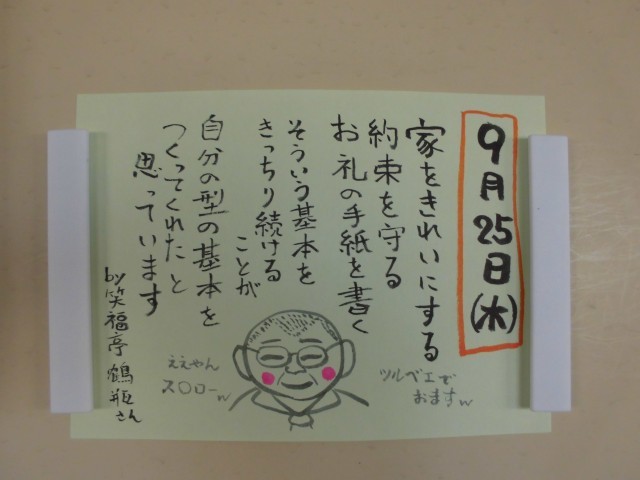 9月25日(木)
家をきれいにする
約束を守る
お礼の手紙を書く
そういう基本を
きっちり続ける
ことが
自分の型の基本を
つくってくれたと
思っています
by笑福亭鶴瓶さん
ツルベエで
おますw
ええやん
スローw